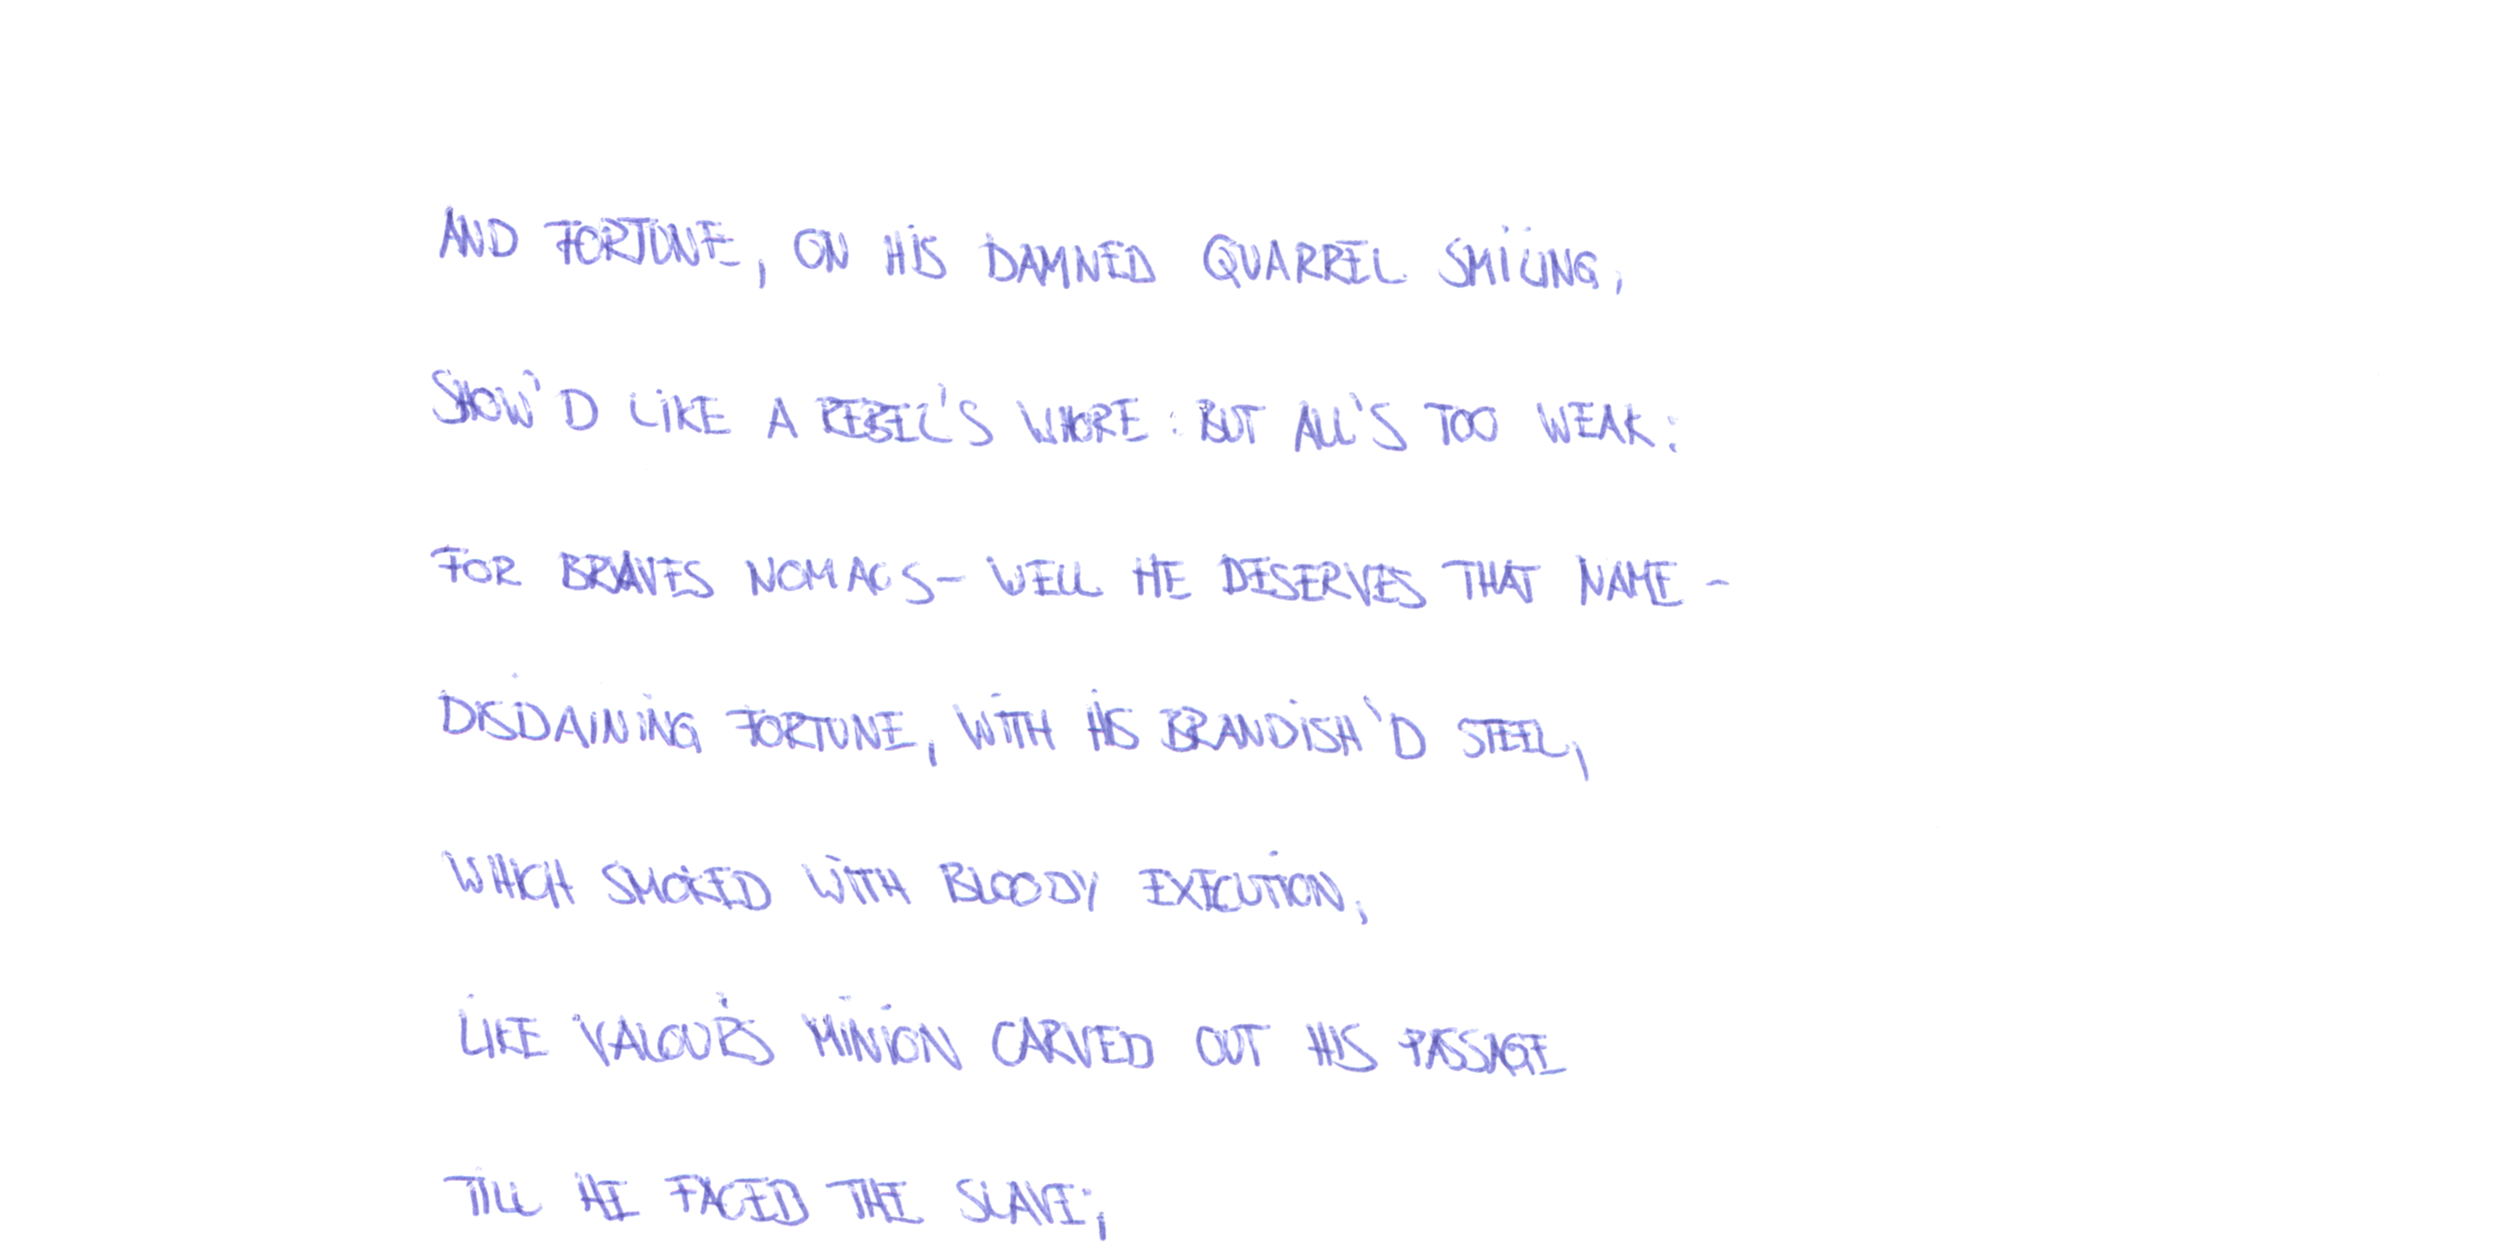 AND FORTUNE, ON HIS DAMNED QUARREL SMILING,
SHOW'D LIKE A REBEL'S WHORE: BUT ALL'S TOO WEAK:
FOR BRAVES NOMAGS- WELL HE DESERVES THAT NAME -
DISDAINING FORTUNE, WITH HIS BRANDISH'D STEEL,
WHICH SMOKED WITH BLOODY EXECUTION,
LIKE VALOUR'S MINION CARVED OUT HIS PASSAGE
TILL HE FACED THE SLAVE;